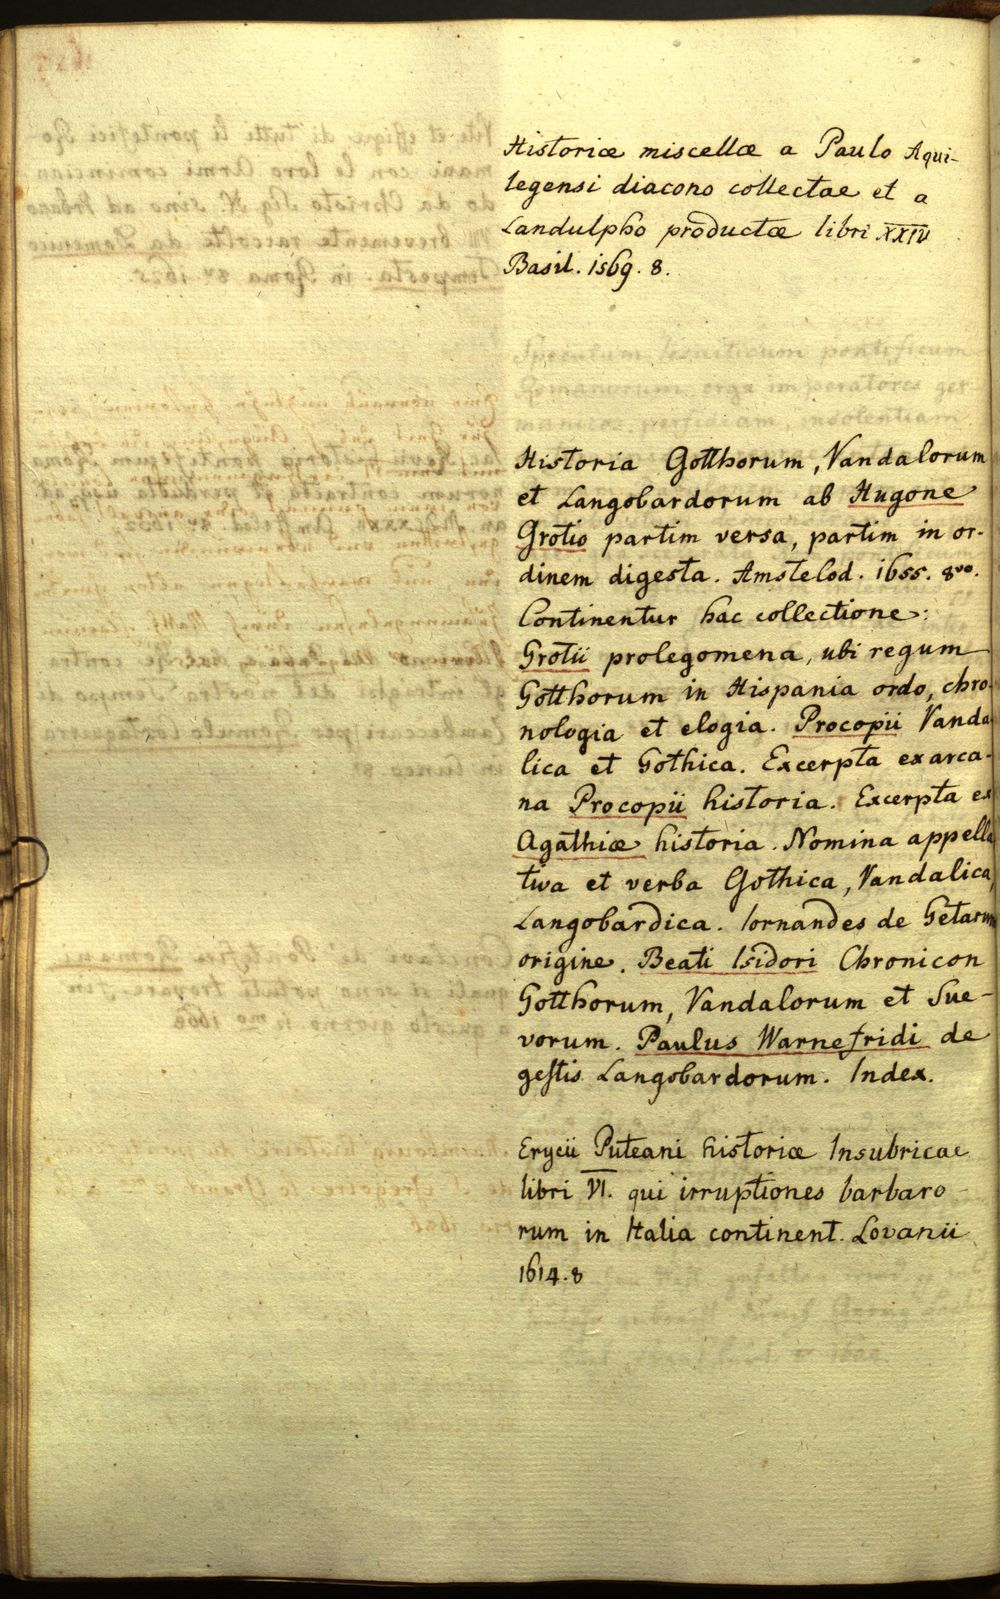 Historiæ miscellæ a Paulo Aqui-
legensi diacono collectae et a
Landulpho productæ libri XXIV
Basil. 1569. 8.
Historia Gotthorum, Vandalorum
et Langobardorum ab Hugone
Grotio partim versa, partim in or-
dinem digesta. Amstelod. 1655. 8vo.
Continentur hac collectione:
Grotii prolegomena, ubi regum
Gotthorum in Hispania ordo, chro-
nologia et elogia. Procopii Vanda
lica et Gothica. Excerpta ex arca-
na Procopii historia. Excerpta ex
Agathiæ historia. Nomina appella
tiva et verba Gothica, Vandalica,
Langobardica. Iornandes de Getarum
origine. Beati Isidori Chronicon
Gotthorum, Vandalorum et Sue-
vorum. Paulus Warnefridi de
gestis Langobardorum. Index.
Erycii Puteani historiæ Insubricae
libri VI. qui irruptiones barbaro-
rum in Italia continent. Lovanii
1614. 8